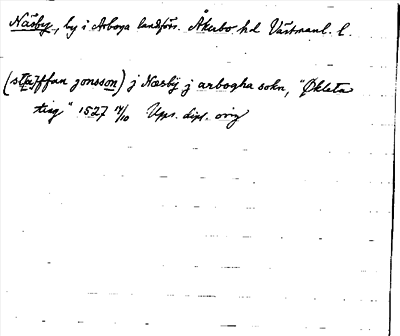 Näsby, by i Arboga landförs. Åkerbo hd Västmanl. l.
(staffan jonsson) j Næsby j arbogha sokn, "Økleta
ting" 1527 14/10 Ups. dipl. orig